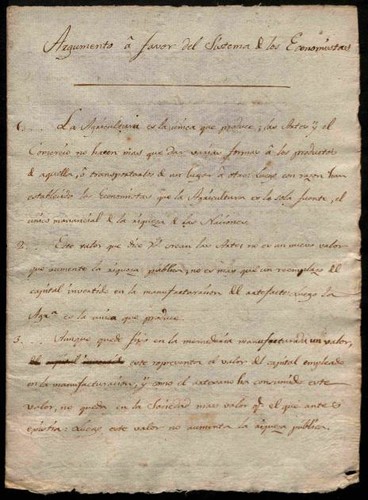 Argumento â favor del Sistema de los Economistas
1. ... La Agricultura es la unica que produce, las Artes y el
Comercio no hacen mas que dar varias formas â los productos
de aquella, ô transportarlos de un lugar â otro: luego con razon han
establecido los Economistas que la Agricultura es la sola fuente, el
unico manancial de la riqueza de las Naciones.
2. ... Este valor que dice crean las Artes, no es un nuevo valor
que aumente la riqueza publica, no es mas que un reemplazo del
capital invertido en la manufacturacion del artefacto: luego la
Agra. es la unica que produce.
3. ... Aunque quede fijo en la manufacturada un valor,
este representa el valor del capital empleado
en la manufacturacion, y como el artesano ha consumido este
valor, no queda en la Sociedad mas valor q. el que antes
existia: este valor no aumenta la riqueza publica.